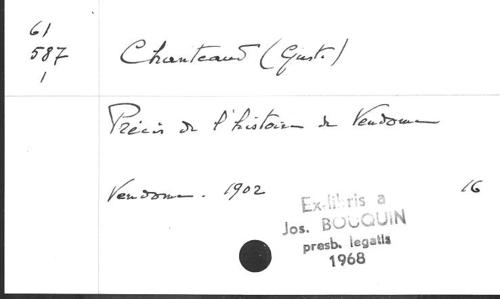 61
587
1
Chanteaud (Gust.)
Précis de l'histoire de Vendome
Vendome. 1902 16
Ex-libris a
Jos. BOUQUIN
presb. legatis
1968